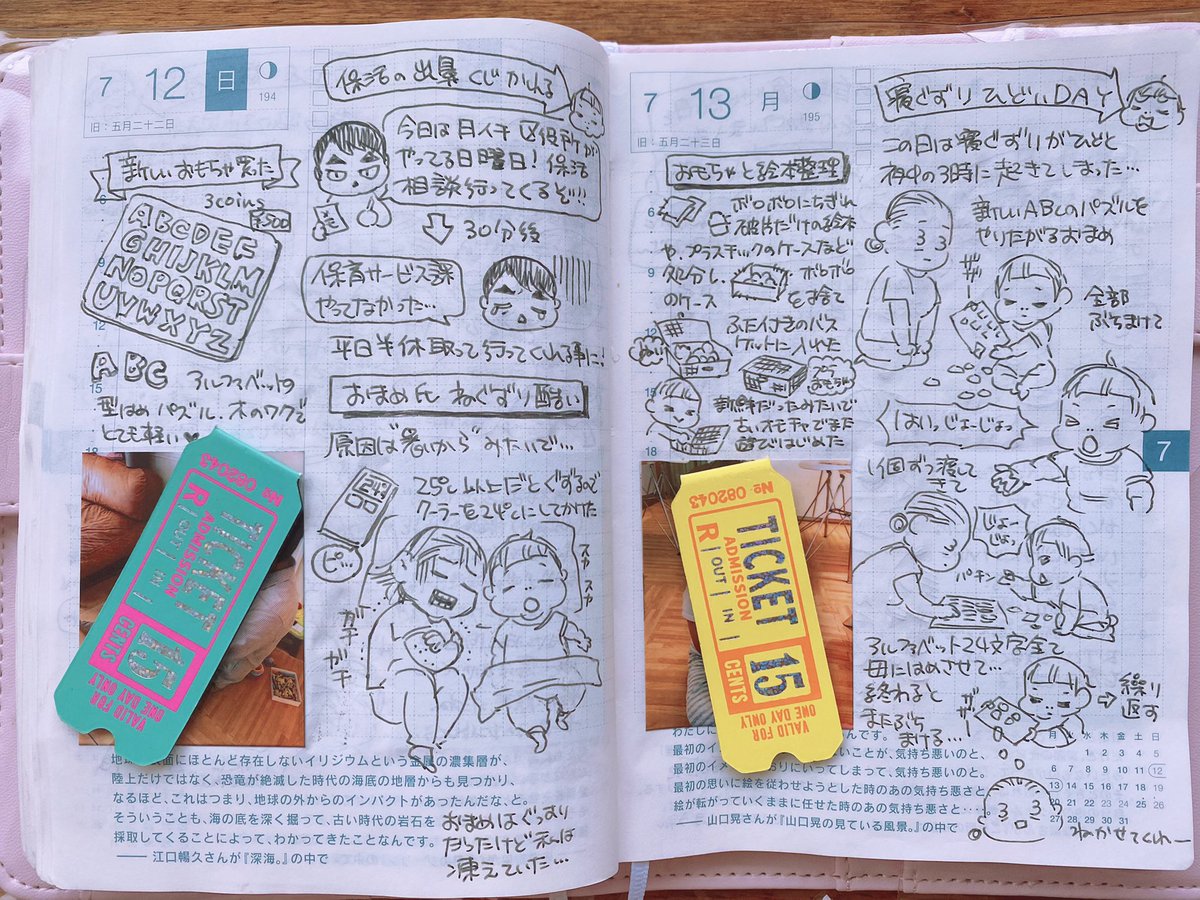 7 12 日
194
旧：五月二十二日
新しいおもちゃ買った
3coins
¥500
ABCDEF
GHIJKLM
NOPQRST
UVWXYZ
ABC
アルファベットの
型はめパズル、木のワクで
とても軽い♥
保活の出暴くじかんる
今日は月イチ区役所が
やってる日曜日！保活
相談行ってくるぞ!!!
30分後
保育サービス課
やってなかった…
平日半休取って行ってくれる事に！
おまめ氏 ねぐずり酷い
原因は"暑いから"みたいで…
25℃以上だとぐずるので
クーラーを24℃にしてかけた
24℃
ピ…
スカスカ
ガチガチ
おまめはぐっすり
だったけど私は
凍えていた…
No 082043
TICKET
ADMISSION
R OUT IN
15
CENTS
VALID FOR
ONE DAY ONLY
地球表面にほとんど存在しないイリジウムという金属の濃集層が、
陸上だけではなく、恐竜が絶滅した時代の海底の地層からも見つかり、
なるほど、これはつまり、地球の外からのインパクトがあったんだな、と。
そういうことも、海の底を深く掘って、古い時代の岩石を
採取してくることによって、わかってきたことなんです。
── 江口暢久さんが『深海。』の中で
7 13 月
195
旧：五月二十三日
おもちゃと絵本整理
ボロボロにちぎれ
破片だけの絵本
や、プラスチックのケースなど
処分し、
ボロボロ
のケース
を捨て
ふた付きのバス
ケットに入れた
新鮮だったみたいで
古いオモチャでまた
遊びはじめた
寝ぐずりひどいDAY
この日は寝ぐずりがひどく
夜中の3時に起きてしまった…
新しいABCのパズルを
やりたがるおまめ
全部
ぶちまけて
はいっ、じょーじょっ
1個ずつ渡して
きて
じょー
じょっ
パチン
アルファベット24文字全て
母にはめさせて…
終わると
またぶち
まける…
繰り
返す
ねかせてくれー
No 082043
TICKET
ADMISSION
R OUT IN
15
CENTS
VALID FOR
ONE DAY ONLY
7
最初の思いに絵を従わせようとした時のあの気持ち悪さと
絵が転がっていくままに任せた時のあの気持ち悪さと……
── 山口晃さんが『山口晃の見ている風景。』の中で
月 火 水 木 金 土 日
1 2 3 4 5
6 7 8 9 10 11 12
13 14 15 16 17 18 19
20 21 22 23 24 25 26
27 28 29 30 31